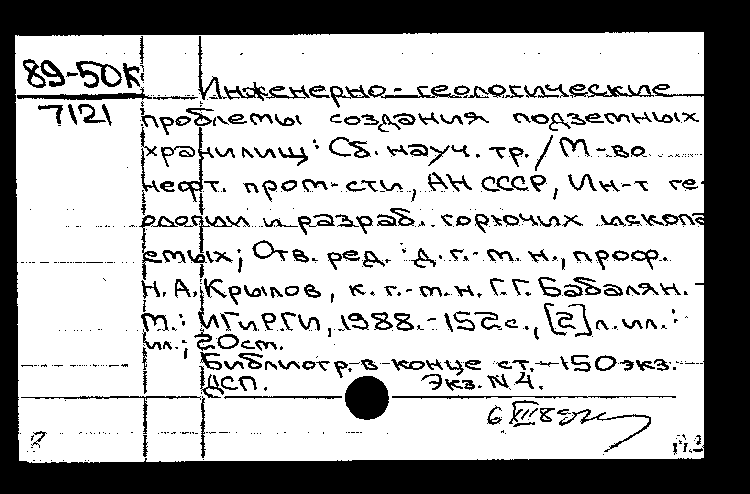 89-50К
7121
Инженерно-геологические
проблемы создания подземных
хранилищ: Сб. науч. тр. / М-во
нефт. пром-сти, АН СССР, Ин-т ге-
ологии и разраб. горючих ископа
емых; Отв. ред.: д. г.-м. н., проф.
Н. А. Крылов, к. г.-м. н. Г. Г. Бабалян. -
М.: ИГиРГИ, 1988. - 152 с., [2] л. ил.:
ил.; 20 см.
Библиогр. в конце ст. - 150 экз.
ДСП. Экз. N 4.
6 XII 89
8